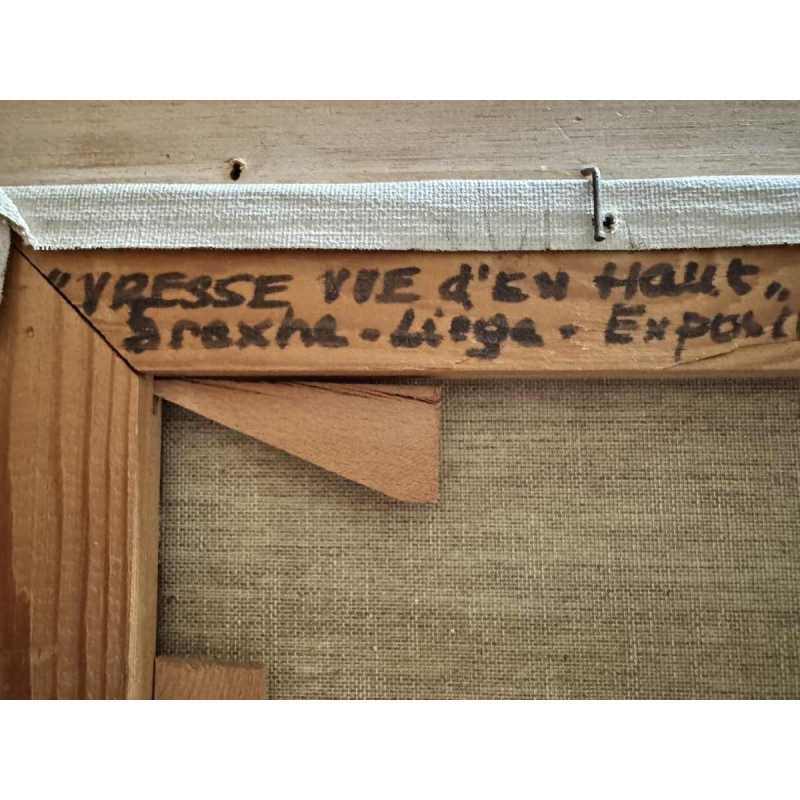 "VRESSE VUE d'EN HAUT"
Srexhe - Liège - Exposi